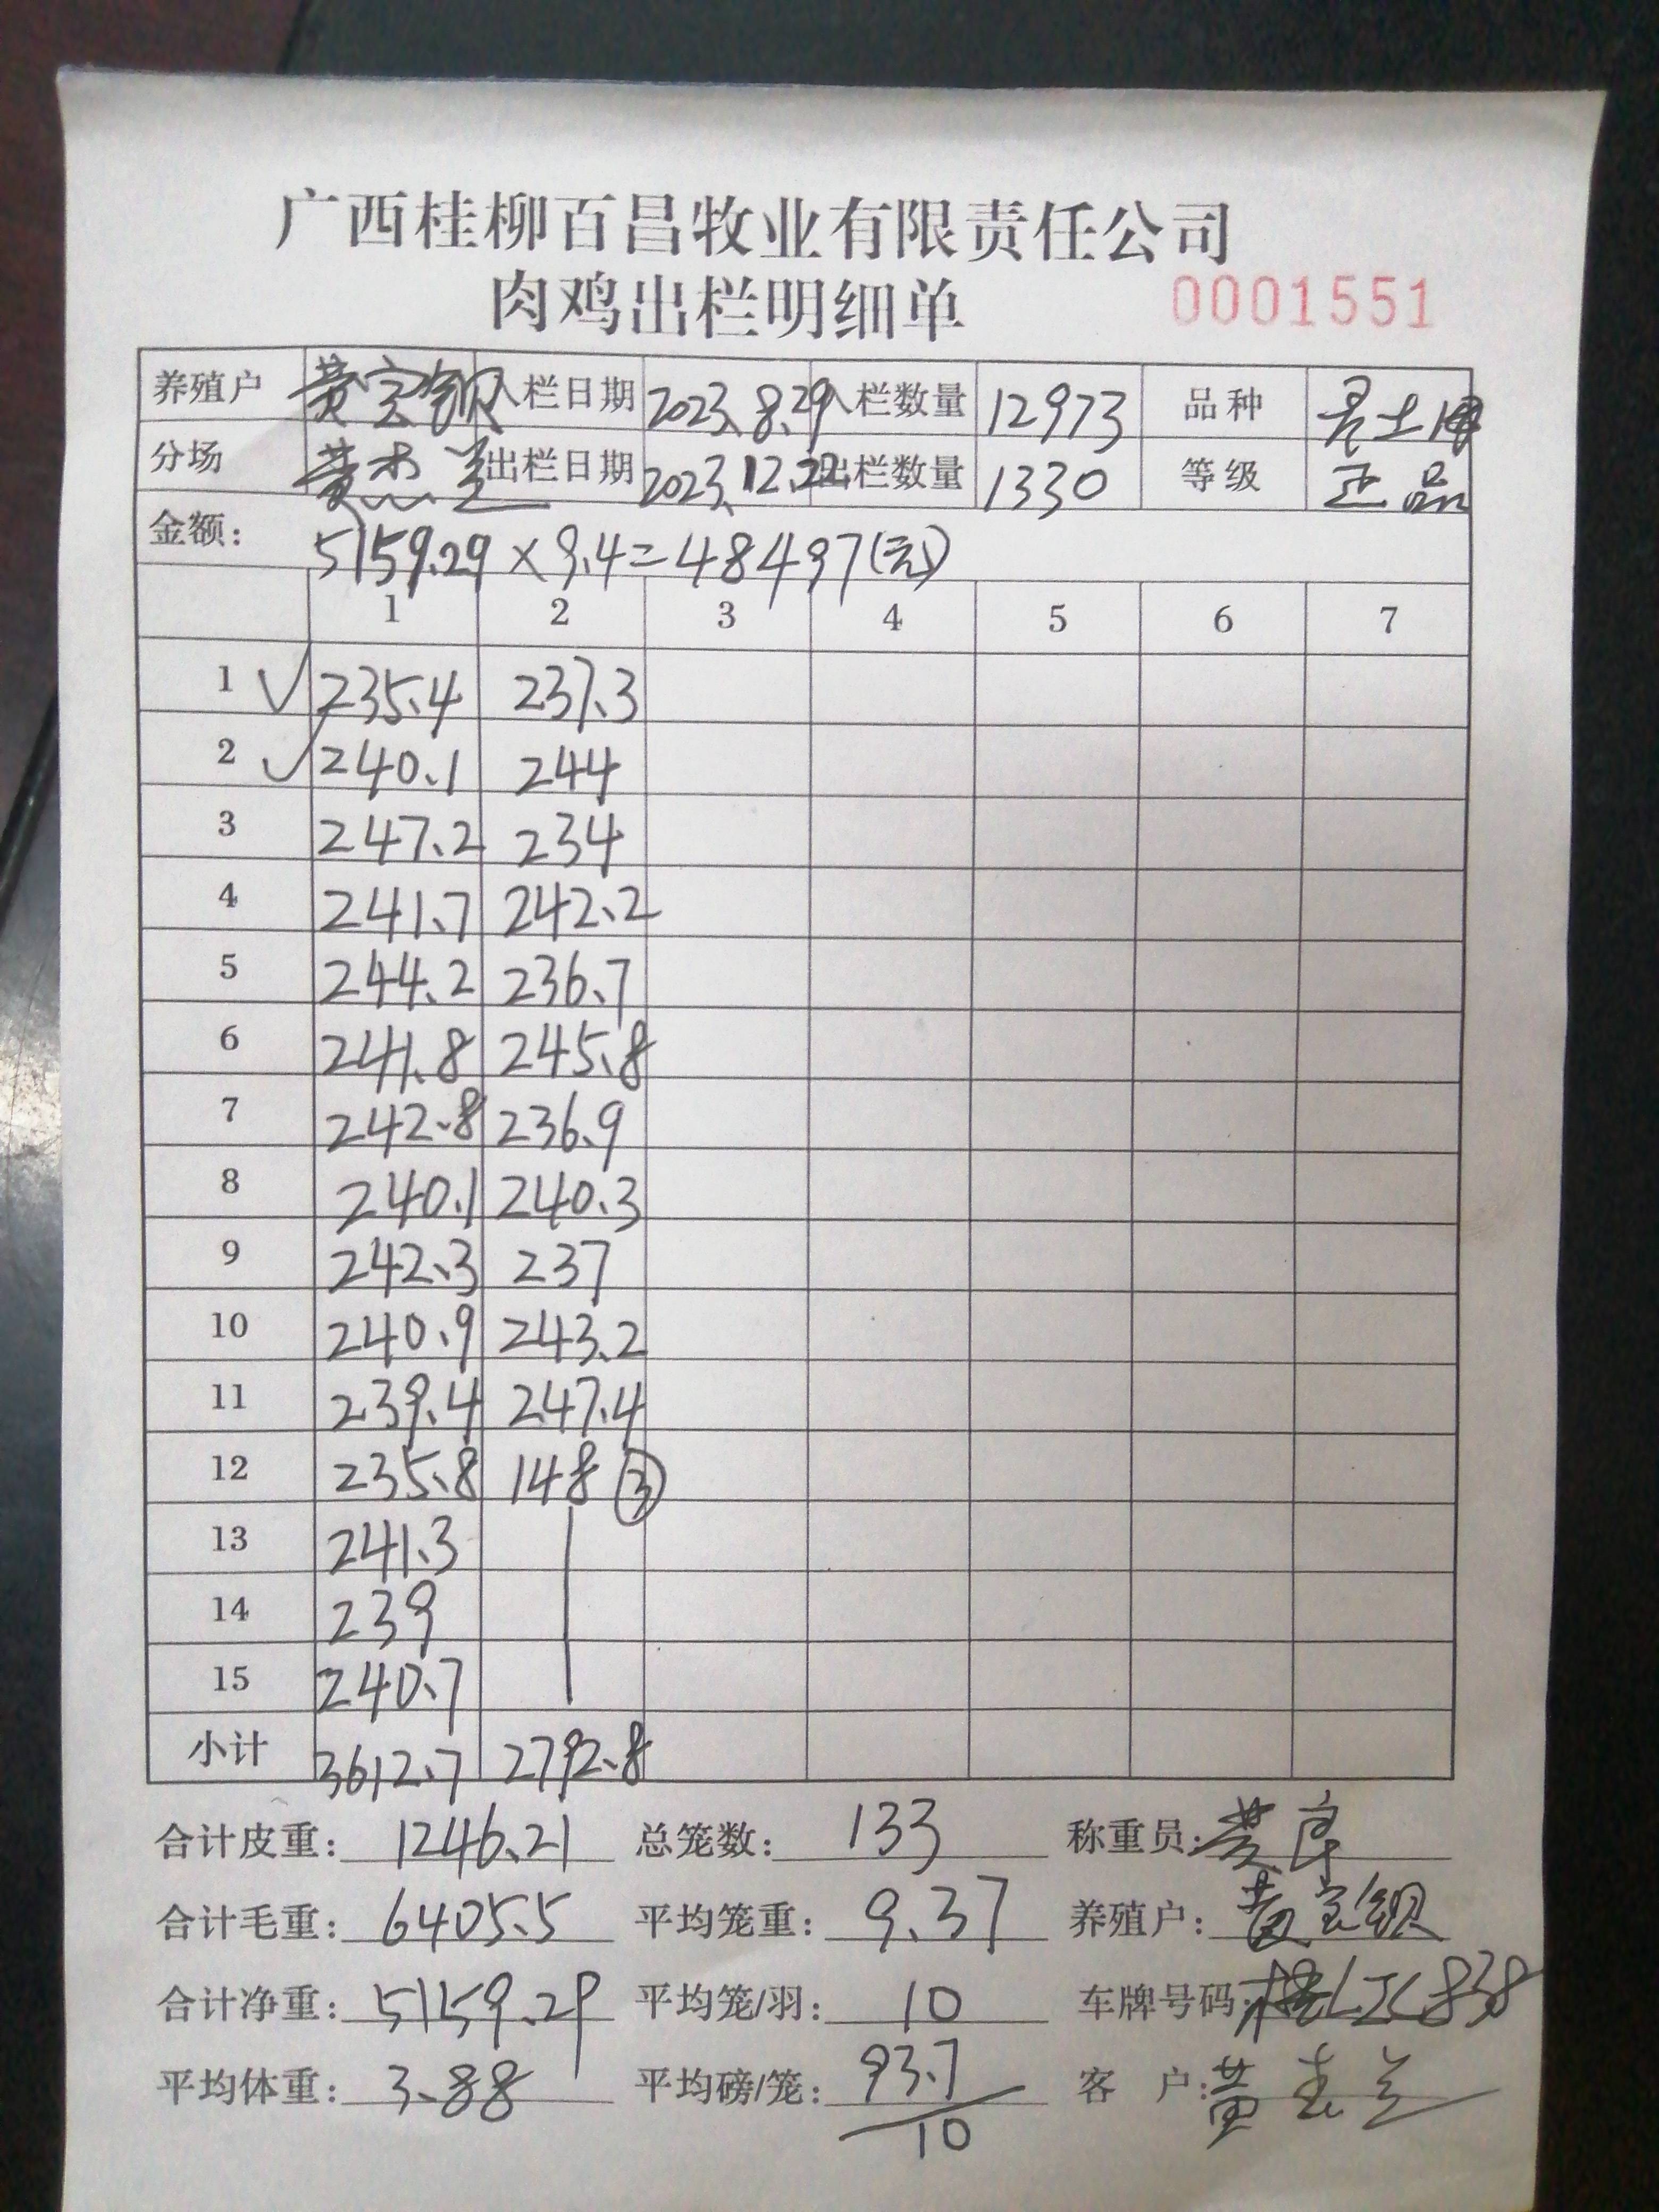 广西桂柳百昌牧业有限责任公司
肉鸡出栏明细单 0001551
养殖户 黄宝钡 入栏日期 2023.8.29 入栏数量 12973 品种
分场 黄 出栏日期 2023.12.22 出栏数量 1330 等级 正品
金额: 5159.29×9.4=48497(元)
1 2 3 4 5 6 7
1 235.4 237.3
2 240.1 244
3 247.2 234
4 241.7 242.2
5 244.2 236.7
6 241.8 245.8
7 242.8 236.9
8 240.1 240.3
9 242.3 237
10 240.9 243.2
11 239.4 247.4
12 235.8 148 ③
13 241.3
14 239
15 240.7
小计 3612.7 2792.8
合计皮重: 1246.21 总笼数: 133 称重员:
合计毛重: 6405.5 平均笼重: 9.37 养殖户: 黄宝钡
合计净重: 5159.29 平均笼/羽: 10 车牌号码:
平均体重: 3.88 平均磅/笼: 93.7 客 户: 黄
10